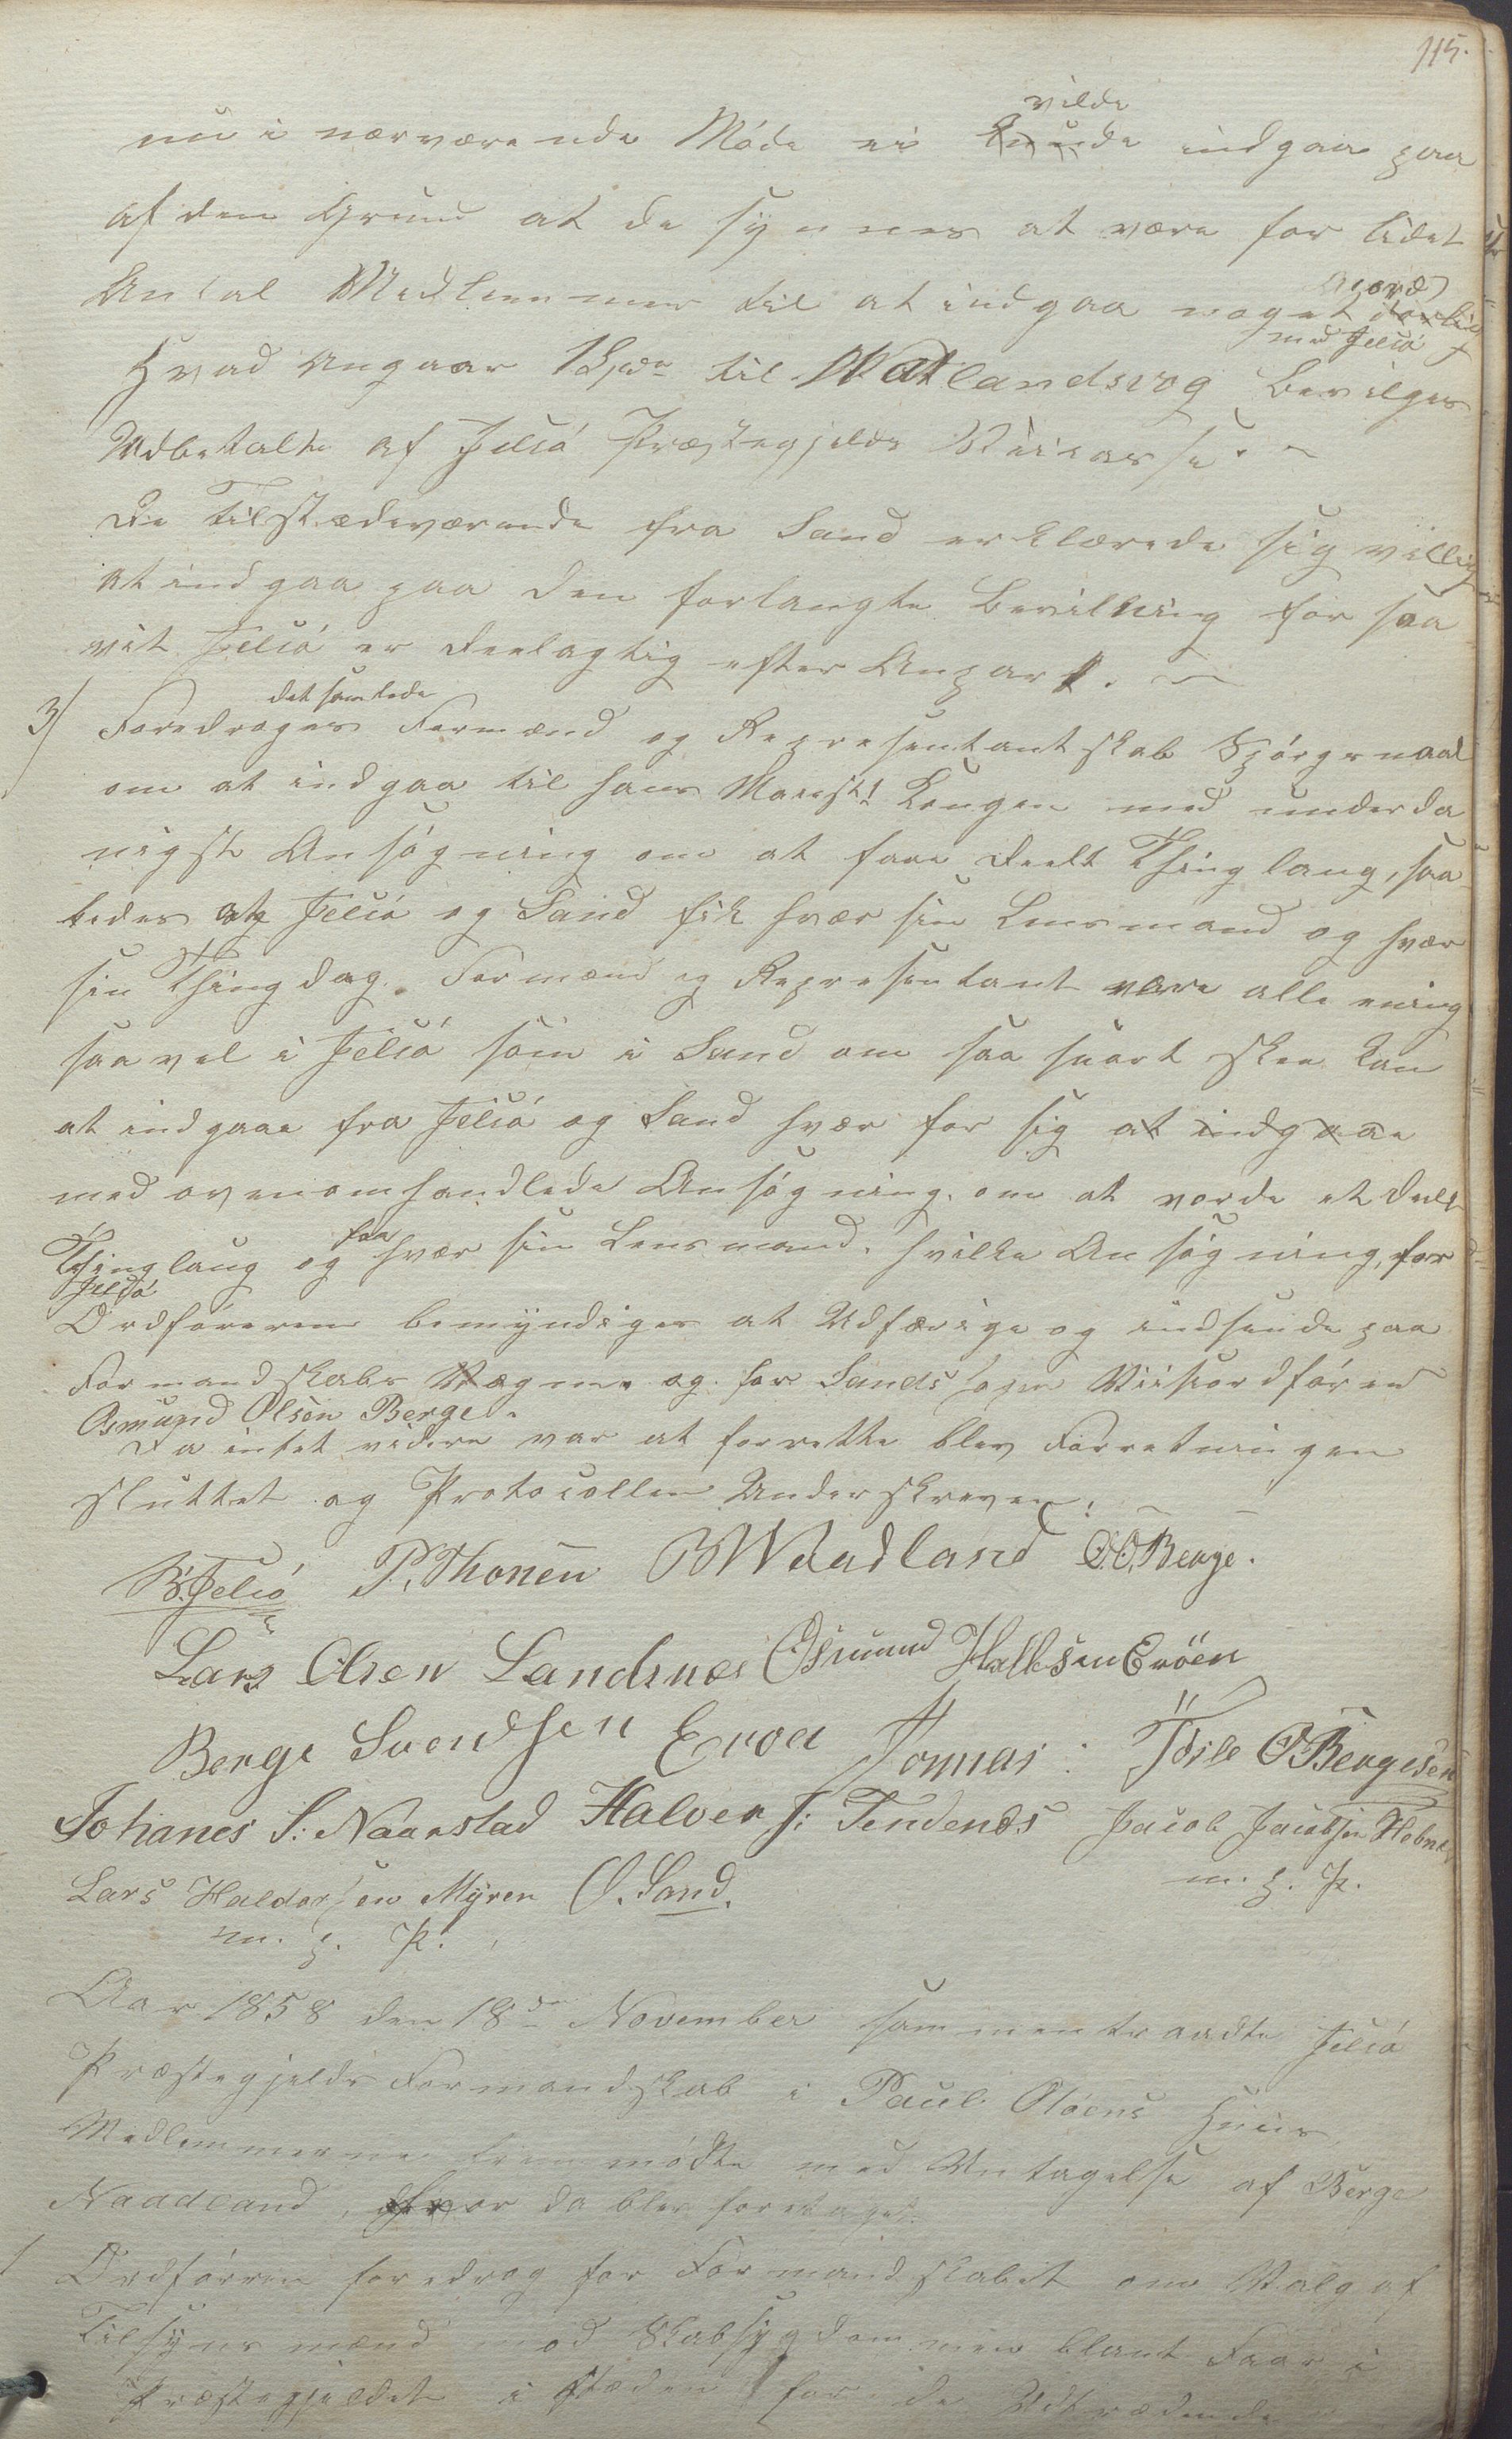 115.
vilde
nu i nærværende Møde ei kunde indgaa paa
af den Grund at de synnes at være for lidet
Antal Medlemmer til at indgaa noget
med Jelsø
Hvad Angaar 1 Spd til Watlandsvog bevilges
Udbetalte af Jelsø Præstegjelds
De Tilstædeværende fra Sand erklærede sig villig
at indgaa paa den forlangte Bevilling for saa
vit Jelsø er deelagtig efter Anpart.
det samlede
3/ Foredroges Formænd og Representantskab Spørgsmaal
om at indgaa til hans Maiest! Kongen med underda
nigst Ansøgning om at faae deelt Thinglaug, saa
ledes at Jelsø og Sand fik hvær sin Lensmand og hvær
sin Thingdag. Formænd og Representant vare alle enig
saavel i Jelsø som i Sand om saa snart skee kan
at indgaae fra Jelsø og Sand hvær for sig at indgaae
med ovenomhandlede Ansøgning om at vorde et deelt
faa
Thinglaug og hvær sin Lensmand. hvilke Ansøgning, for
Jelsø
Ordføreren bemyndiges at Udfærige og indsende paa
Formandskabs Vægne og for Sands Sogn Viiseordfører
Osmund Olsen Berge.
Da intet videre var at forrette blev Forretningen
sluttet og Protocollen Underskreven.
B. Jelsø P. Thonen BWaadland O. O. Berge.
Lars Olsen Landsnæs Osmund Hallesen Erøen
Berge Svendsen Eroa Jonnas: Törle O Bergesen
Johanes S: Naarstad Halver J: Tendenæs Jacob Jacobsen Hebnes
m. p. P.
Lars Haldorsen Myren O. Sand.
m. p. P.
Aar 1858 den 18de November sammentraadte Jelsø
Præstegjelds Formandskab i Paul Oløens Huus
Medlemmerne fremmødte med Untagelse af Berge
Naadland, hvor da blev foretaget.
1 Ordføreren foredrog for Formandskabet om Valg af
Tilsyns mænd mod Skabsygdommen blant Faar i
Præstegjeldet i stæden for de Udtrædende